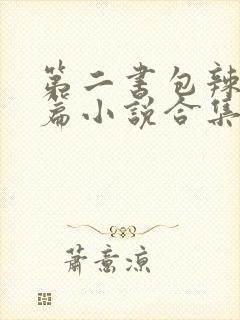 第二书包辣
篇小說合集
蕭意涼